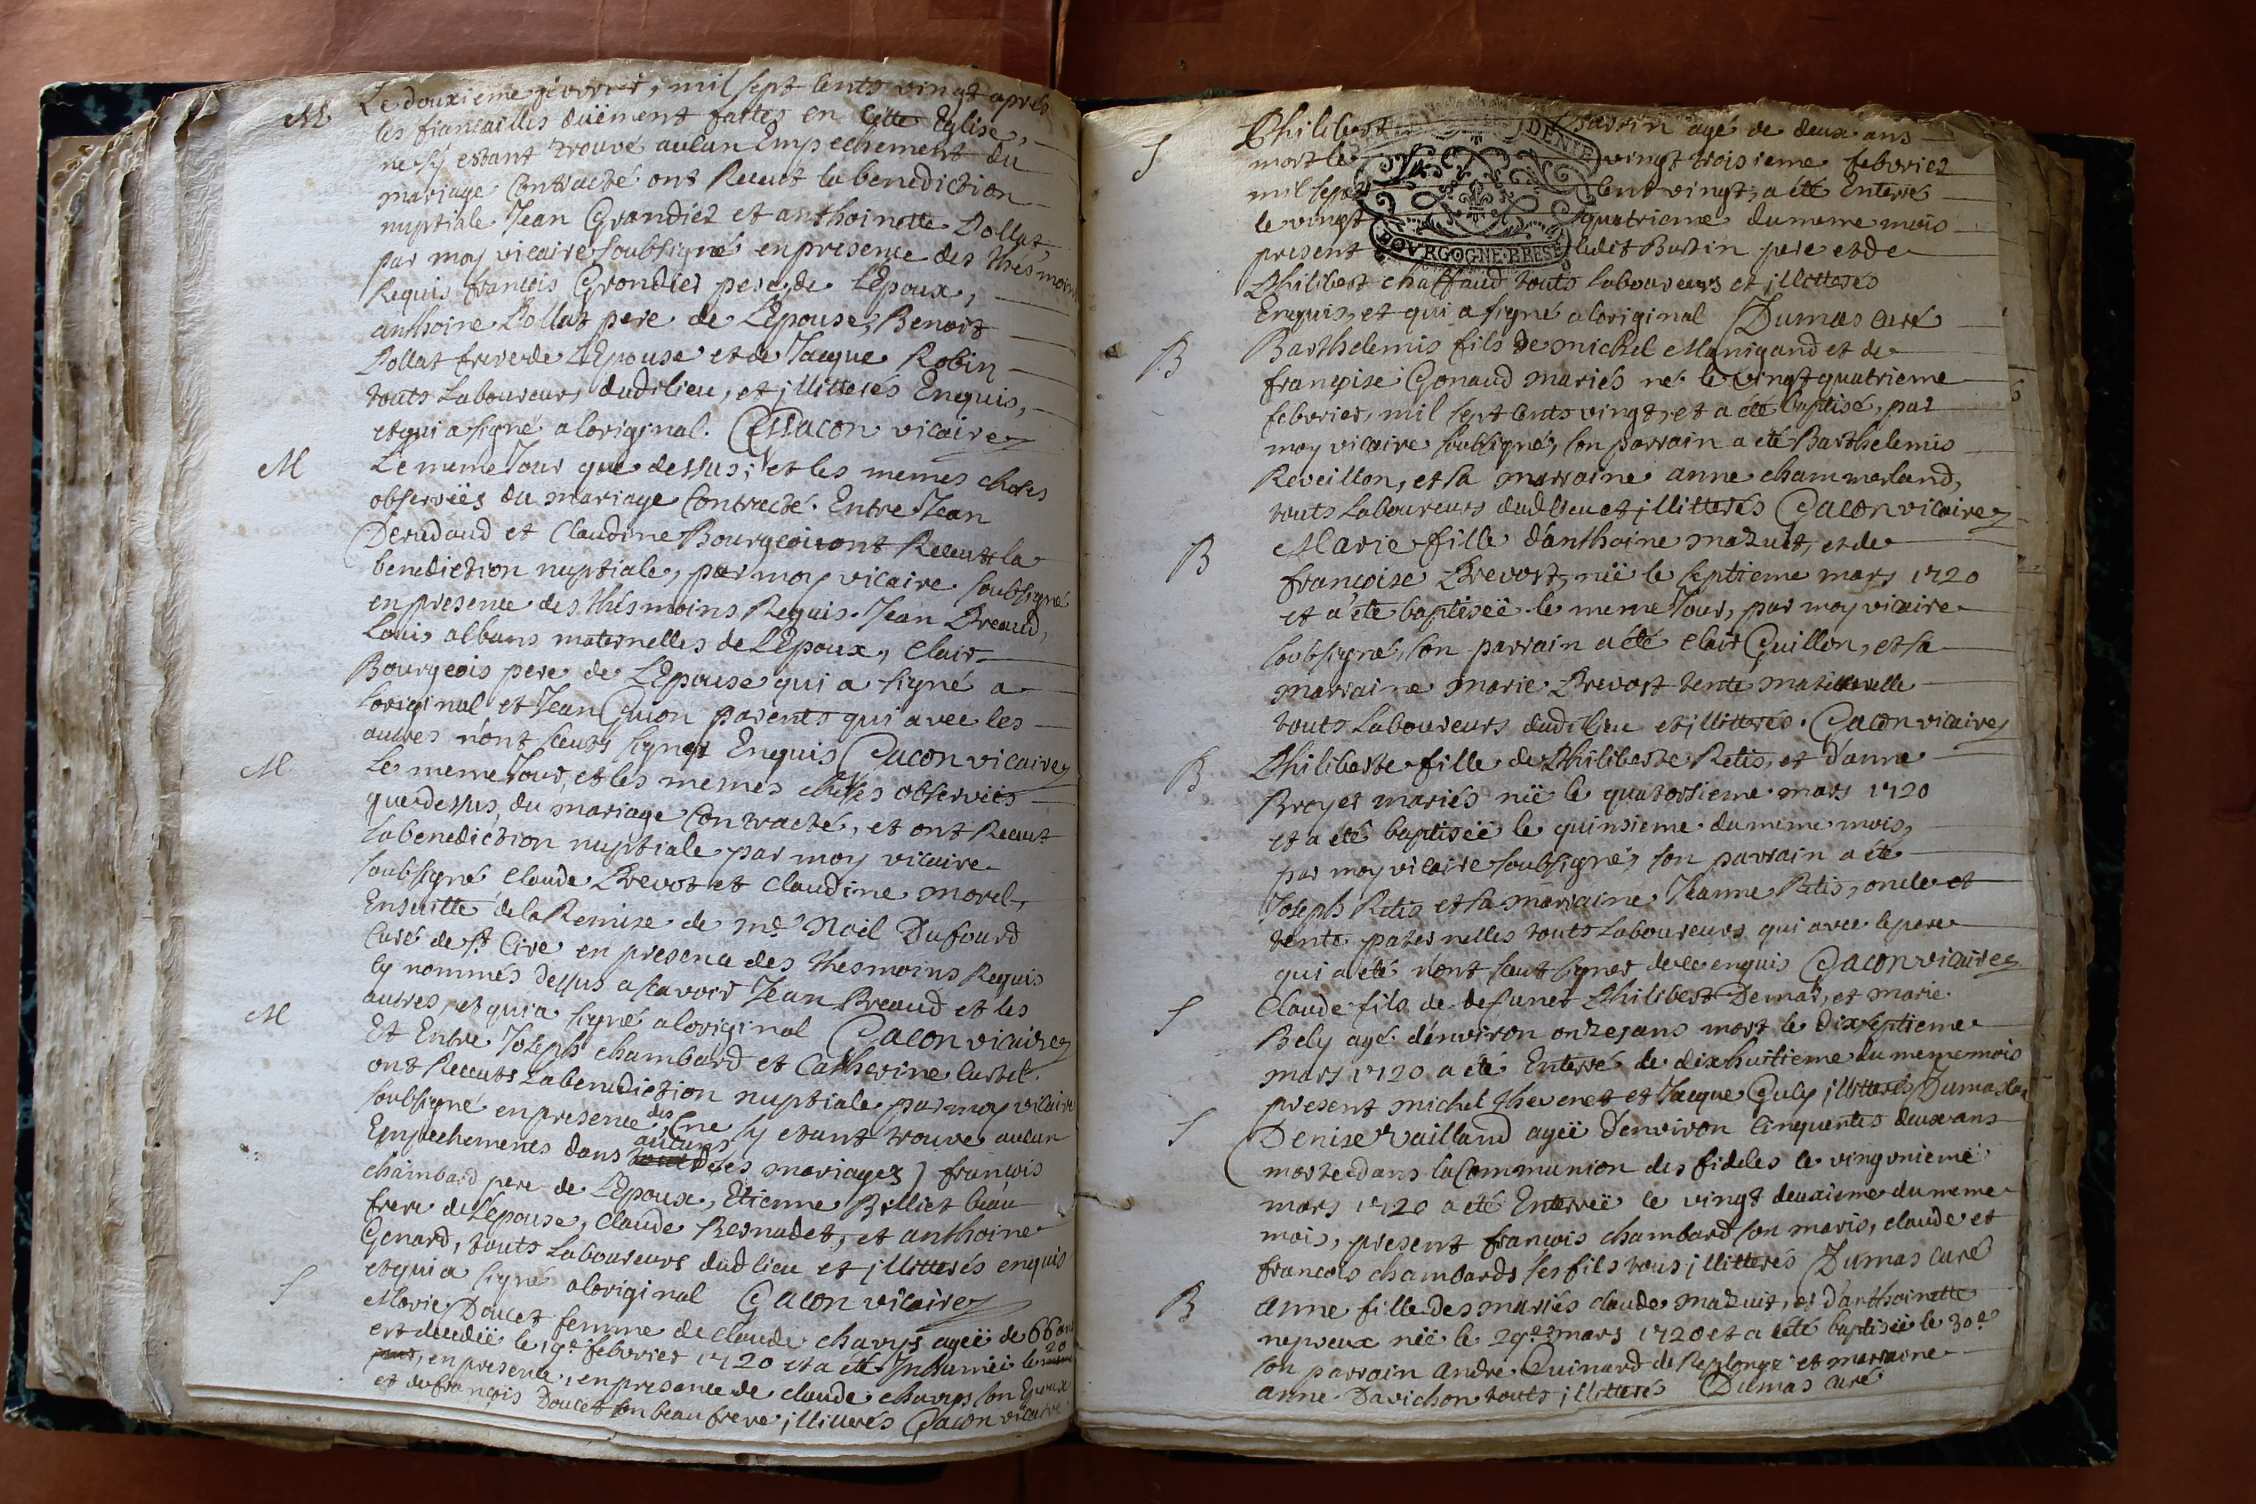 M Le douxieme fevvrier, mil sept cents vingt apres
les fiancailles duëment faites en cette Eglise,
ne sÿ estant trouvé aucun Empechement du
mariage Contracté ont Receut la benediction
nuptiale Jean Grandier et anthoinette Pollat,
par moy vicaire soubsigné en presence des thesmoins
Requis francois Grondier pere de L'Epoux,
anthoine Pollat pere de L'Epouse, Benoit
Pollat frere de L'Epouse et de Jacque Robin
touts Laboureurs dudt lieu, et jllitterés Enquis,
et qui a signé a loriginal. Gacon vicaire
M Le meme Jour que dessus, et les memes choses
observëes du mariage Contracté. Entre Jean
Derudaud et Claudine Bourgeois ont Receut la
benediction nuptiale, par moy vicaire soubsigné
en presence des thésmoins Requis. Jean Breaud,
Louis albans maternelles de L'Epoux, Clair
Bourgeois pere de L'Epouse qui a signé a
Loriginal et Jean Guion parents qui avec les
autres n'ont sceuts signer Enquis Gacon vicaire
M Le meme Jour, et les memes choses observées
que dessus, du mariage Contracté, et ont Receut
La benediction nuptiale par moy vicaire
soubsigné Claude Brevot et Claudine morel,
Ensuitte de la Remise de mre Noël Dufourd
Curé de st Cire en presence des thesmoins Requis
cy nommés dessus a scavoir Jean Breaud et les
autres, et qui a signé a loriginal Gacon vicaire
M Et Entre Joseph chambard et Catherine Curtil
ont Receuts La benediction nuptiale par moy vicaire
soubsigné en presence des (ne sy etant trouvé aucun
Empechements dans aucuns des mariages) francois
chambard pere de L'Epoux, Etienne Billiet beau
frere de L'épouse, Claude Bernadet, et anthoine
Genard, touts Laboureurs dud lieu et jllitterés enquis
et qui a signé a loriginal Gacon vicaire
S Marie Doucet femme de Claude charvys ageë de 66 ans
est decedëe le 19e febvrier 1720 et a eté Inhumëe le 20
en presence, en presence de claude charvys son Epoux
et de francois Doucet son beau frere jllitterés Gacon vicaire
S Philibert Bassin agé de deux ans
mort le vingt troisieme febvrier
mil sept cent vingt, a eté Enterré
le vingt quatrieme du meme mois
present ledit Bassin pere et de
Philibert chaffaud touts Laboureurs et jllitterés
Enquis, et qui a signé a loriginal Dumas curé
BOVRGOGNE·BRESSE
B Barthelemis fils de michel Manigand et de
francoise Gonaud mariés né le vingt quatrieme
febvrier, mil sept cents vingt, et a eté baptisé, par
moy vicaire soubsigné, son parrain a eté Barthelemis
Reveillon, et sa marraine anne chammerland,
touts Laboureurs dud Lieu et jllitterés Gacon vicaire
B Marie fille d'anthoine mazuit, et de
francoise Brevost, nëe le septieme mars 1720
et a eté baptiseë le meme Jour, par moy vicaire
soubsigné, son parrain a eté clair Guillon, et sa
marraine marie Brevost tente maternelle
touts Laboureurs dudt lieu et jllitterés. Gacon vicaire
B Philiberte fille de Philiberte Retis, et d'anne
Broyer mariés nëe le quatorsieme mars 1720
et a eté baptiseë le quinsieme du meme mois,
par moy vicaire soubsigné, son parrain a eté
Joseph Retis et sa marraine Jeanne Retis, oncle et
tente paternelles touts Laboureurs qui avec le pere
qui a eté n'ont sceut signer de ce enquis Gacon vicaire
S Claude fils de defunct Philibert Demas, et marie
Bely agé d'environ onze ans mort le dixseptieme
mars 1720 a eté Enterré le dixhuitieme du meme mois
present michel thevenet et Jacque Guly jllitterés Dumas curé
S Denise Vailland ageë d'environ Cinquentes deux ans
morte dans la Communion des fideles le vingunieme
mars 1720 a eté Enterreë le vingt deuxieme du meme
mois, present francois chambard son maris, claude et
francois chambards ses fils tous jllitterés Dumas curé
B Anne fille des mariés claude mazuit, et d'anthoinette
nepveux nëe le 29e mars 1720 et a eté baptiseë le 30e
son parrain andré Guinard de Replonge et marraine
anne Davichon touts jllitterés Dumas curé